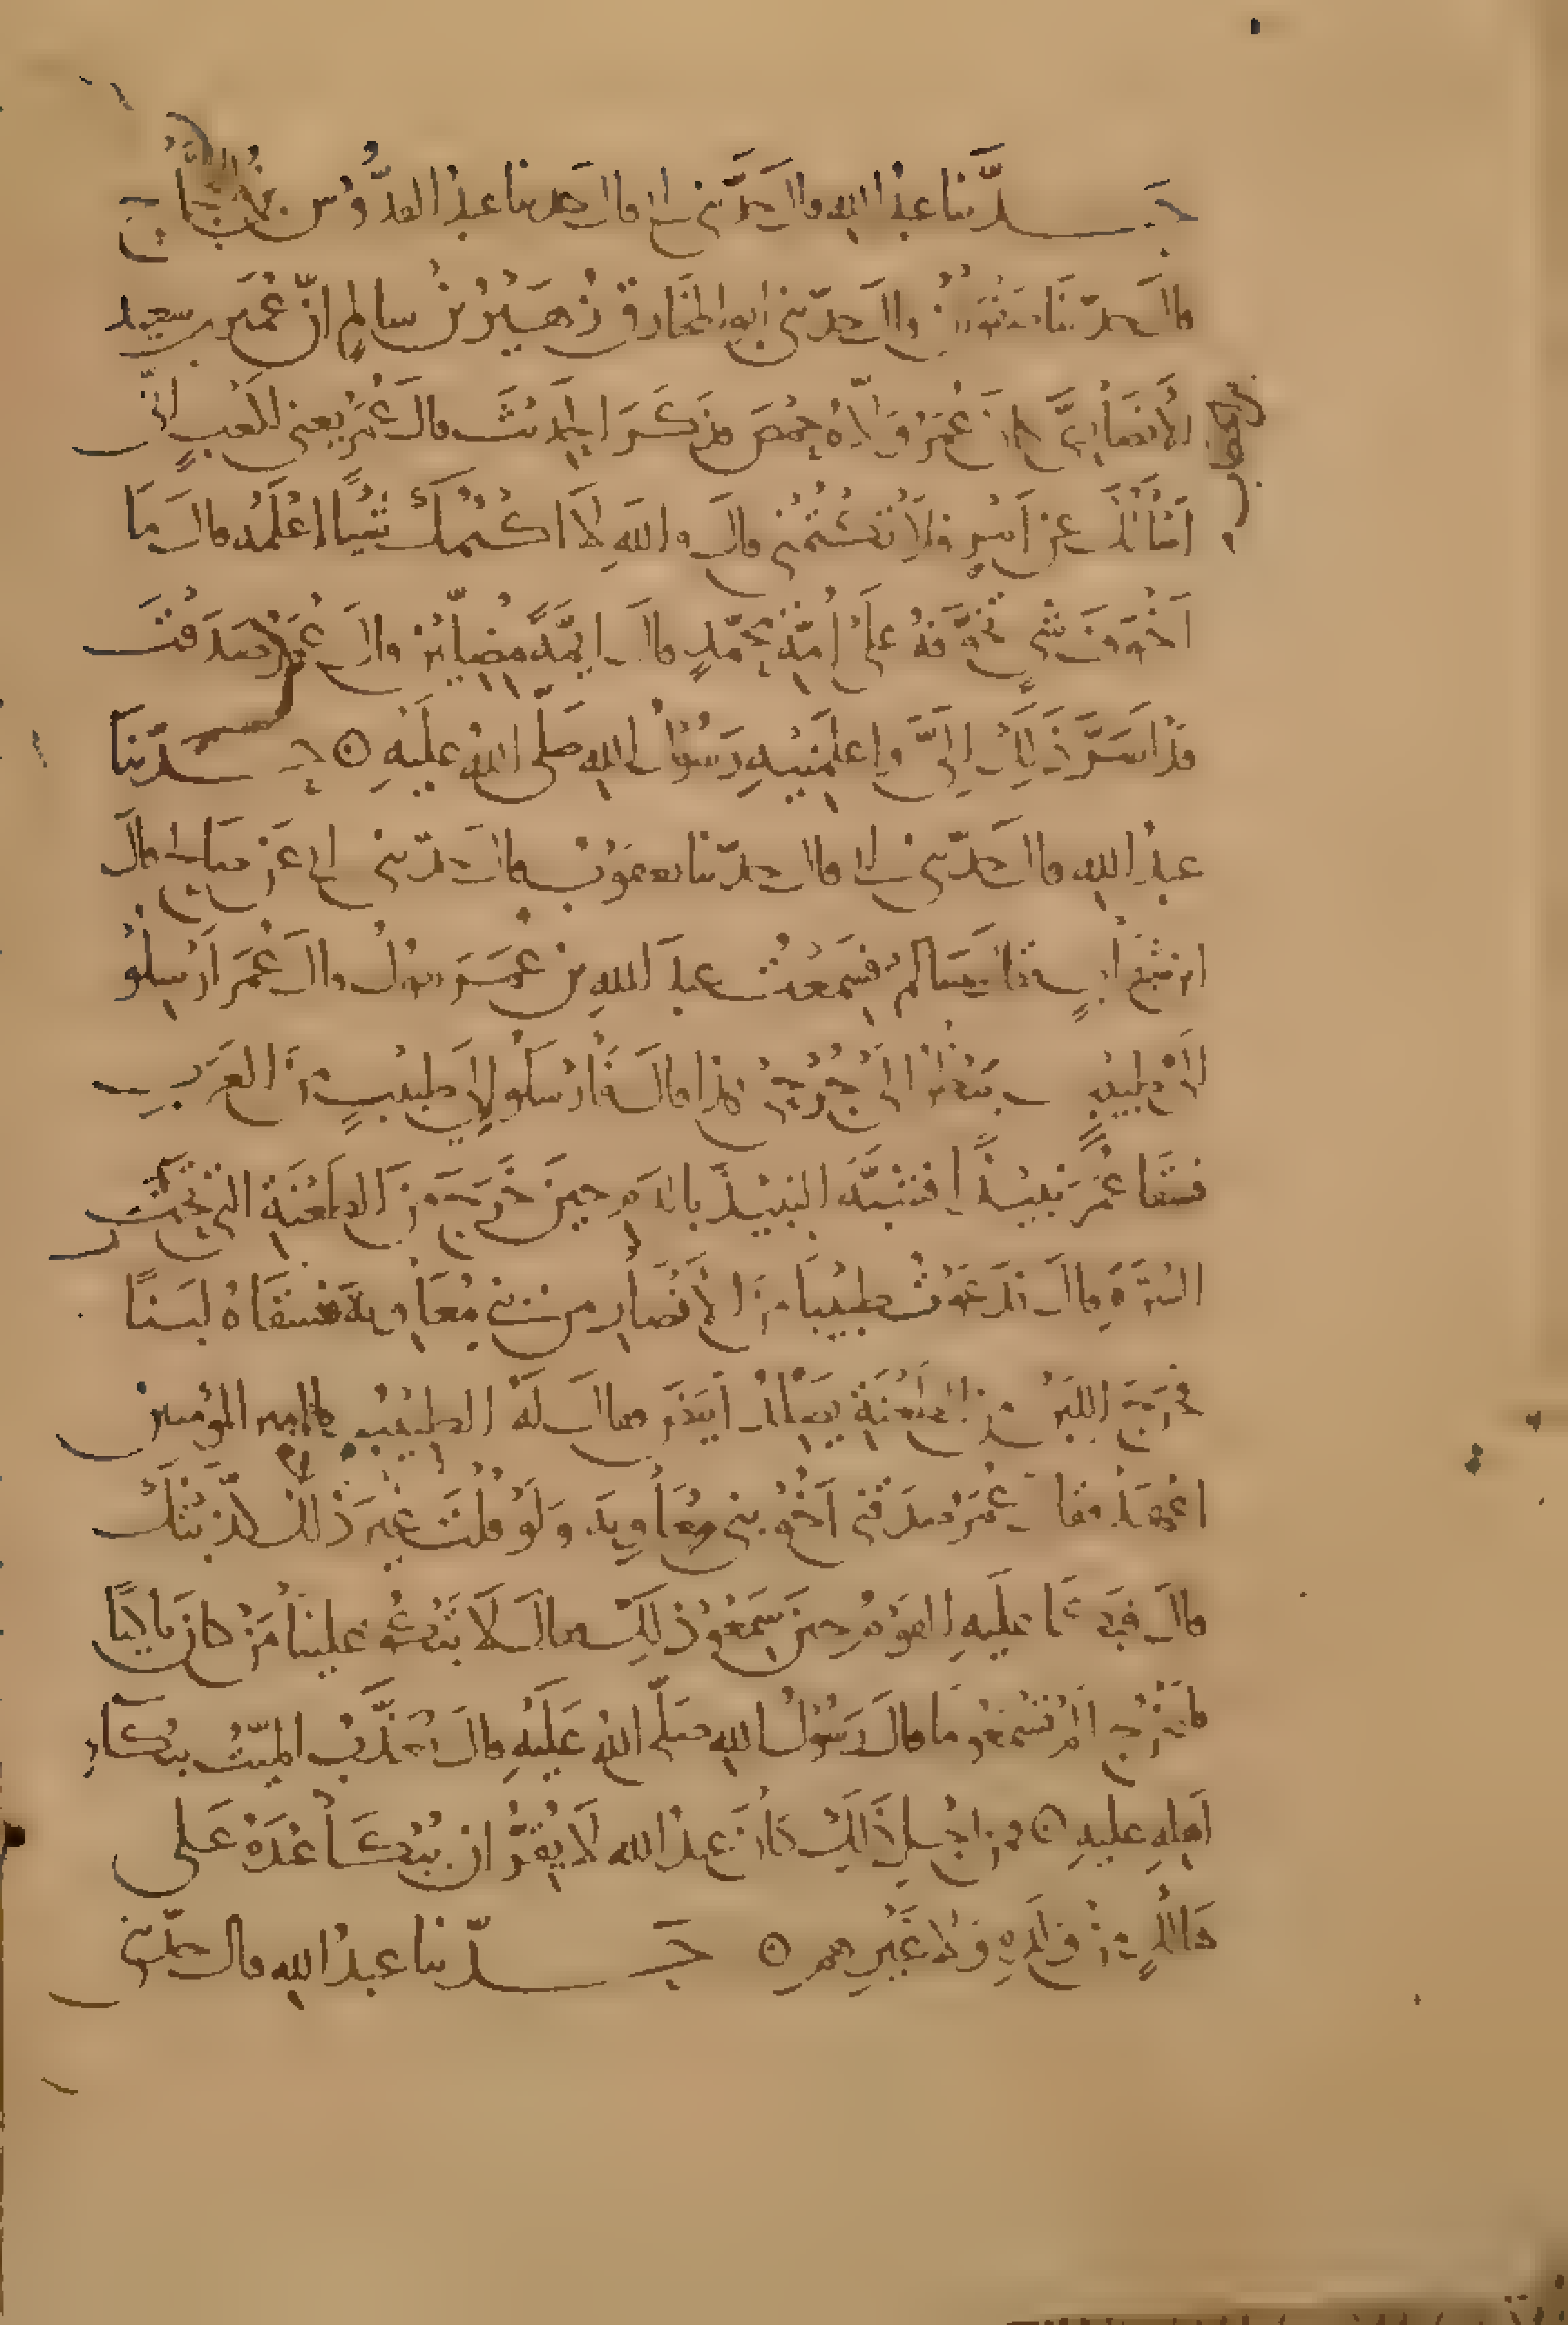 حدثنا عبد الله قال حدثني ابي قال حدثنا عبد القدوس بن الحجاج
قال حدثنا صفوان قال حدثني ابو المخارق زهير بن سالم ان عمير بن سعيد
الأنصاري كان عمر ولاه حمص فذكر الحديث قال عمر يعني لكعب اني
اسألك عن امر فلا تكتمني قال والله لا اكتمك شيئا اعلمه قال ما
اخوف شي تخوفه على امة محمد قال ايمة مضلين قال عمر صدقت
قد اسر ذلك الي واعلمنيه رسول الله صلى الله عليه حدثنا
عبد الله قال حدثني ابي قال حدثنا يعقوب قال حدثني ابي عن صالح قال
ابن شهاب فقال سالم فسمعت عبد الله بن عمر يقول قال عمر ارسلو
الي طبيب ينظر الى جرحي هذا قال فارسلو الى طبيب من العرب
فسقا عمر نبيذا فشبه النبيذ بالدم حين خرج من الطعنة التي تحت
السرة قال فدعوت طبيبا من الأنصار من بني معاوية فسقاه لبنا
فخرج اللبن من الطعنة يصلد ابيض فقال له الطبيب يا امير المؤمنين
اعهد فقال عمر صدقني اخو بني معاوية ولو قلت غير ذلك كذبتك
قال فبكا عليه القوم حين سمعو ذلك فقال لا تبكو علينا من كان باكيا
فليخرج الم تسمعو ما قال رسول الله صلى الله عليه قال يعذب الميت ببكاء
اهله عليه فمن اجل ذلك كان عبد الله لا يقر ان يبكا عنده على
هالك من ولده ولا غيرهم حدثنا عبد الله قال حدثني